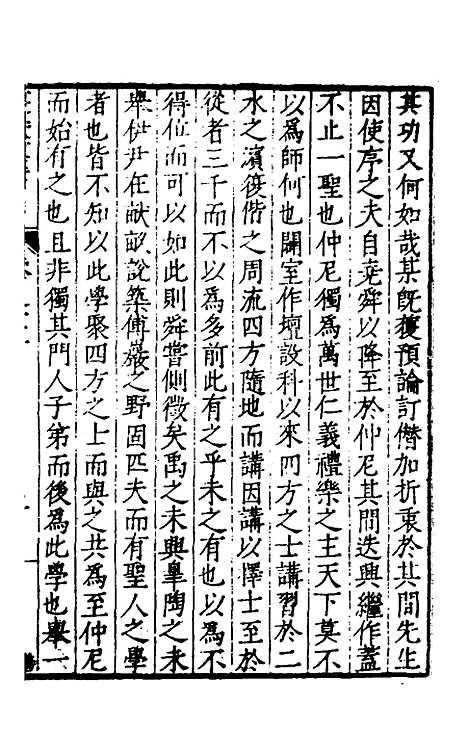 其功又何如哉某旣獲預論訂僭加折衷於其間先生
因使序之夫自堯舜以降至於仲尼其間迭興繼作蓋
不止一聖也仲尼獨爲萬世仁義禮樂之主天下莫不
以爲師何也闢室作壇設科以來四方之士講習於二
水之濱復偕之周流四方隨地而講因講以擇士至於
從者三千而不以爲多前此有之乎未之有也以爲不
得位而可以如此則舜嘗側微矣禹之未興臯陶之未
舉伊尹在畎畝說築傅巖之野固匹夫而有聖人之學
者也皆不知以此學聚四方之士而與之共爲至仲尼
而始有之也且非獨其門人子弟而後爲此學也舉一